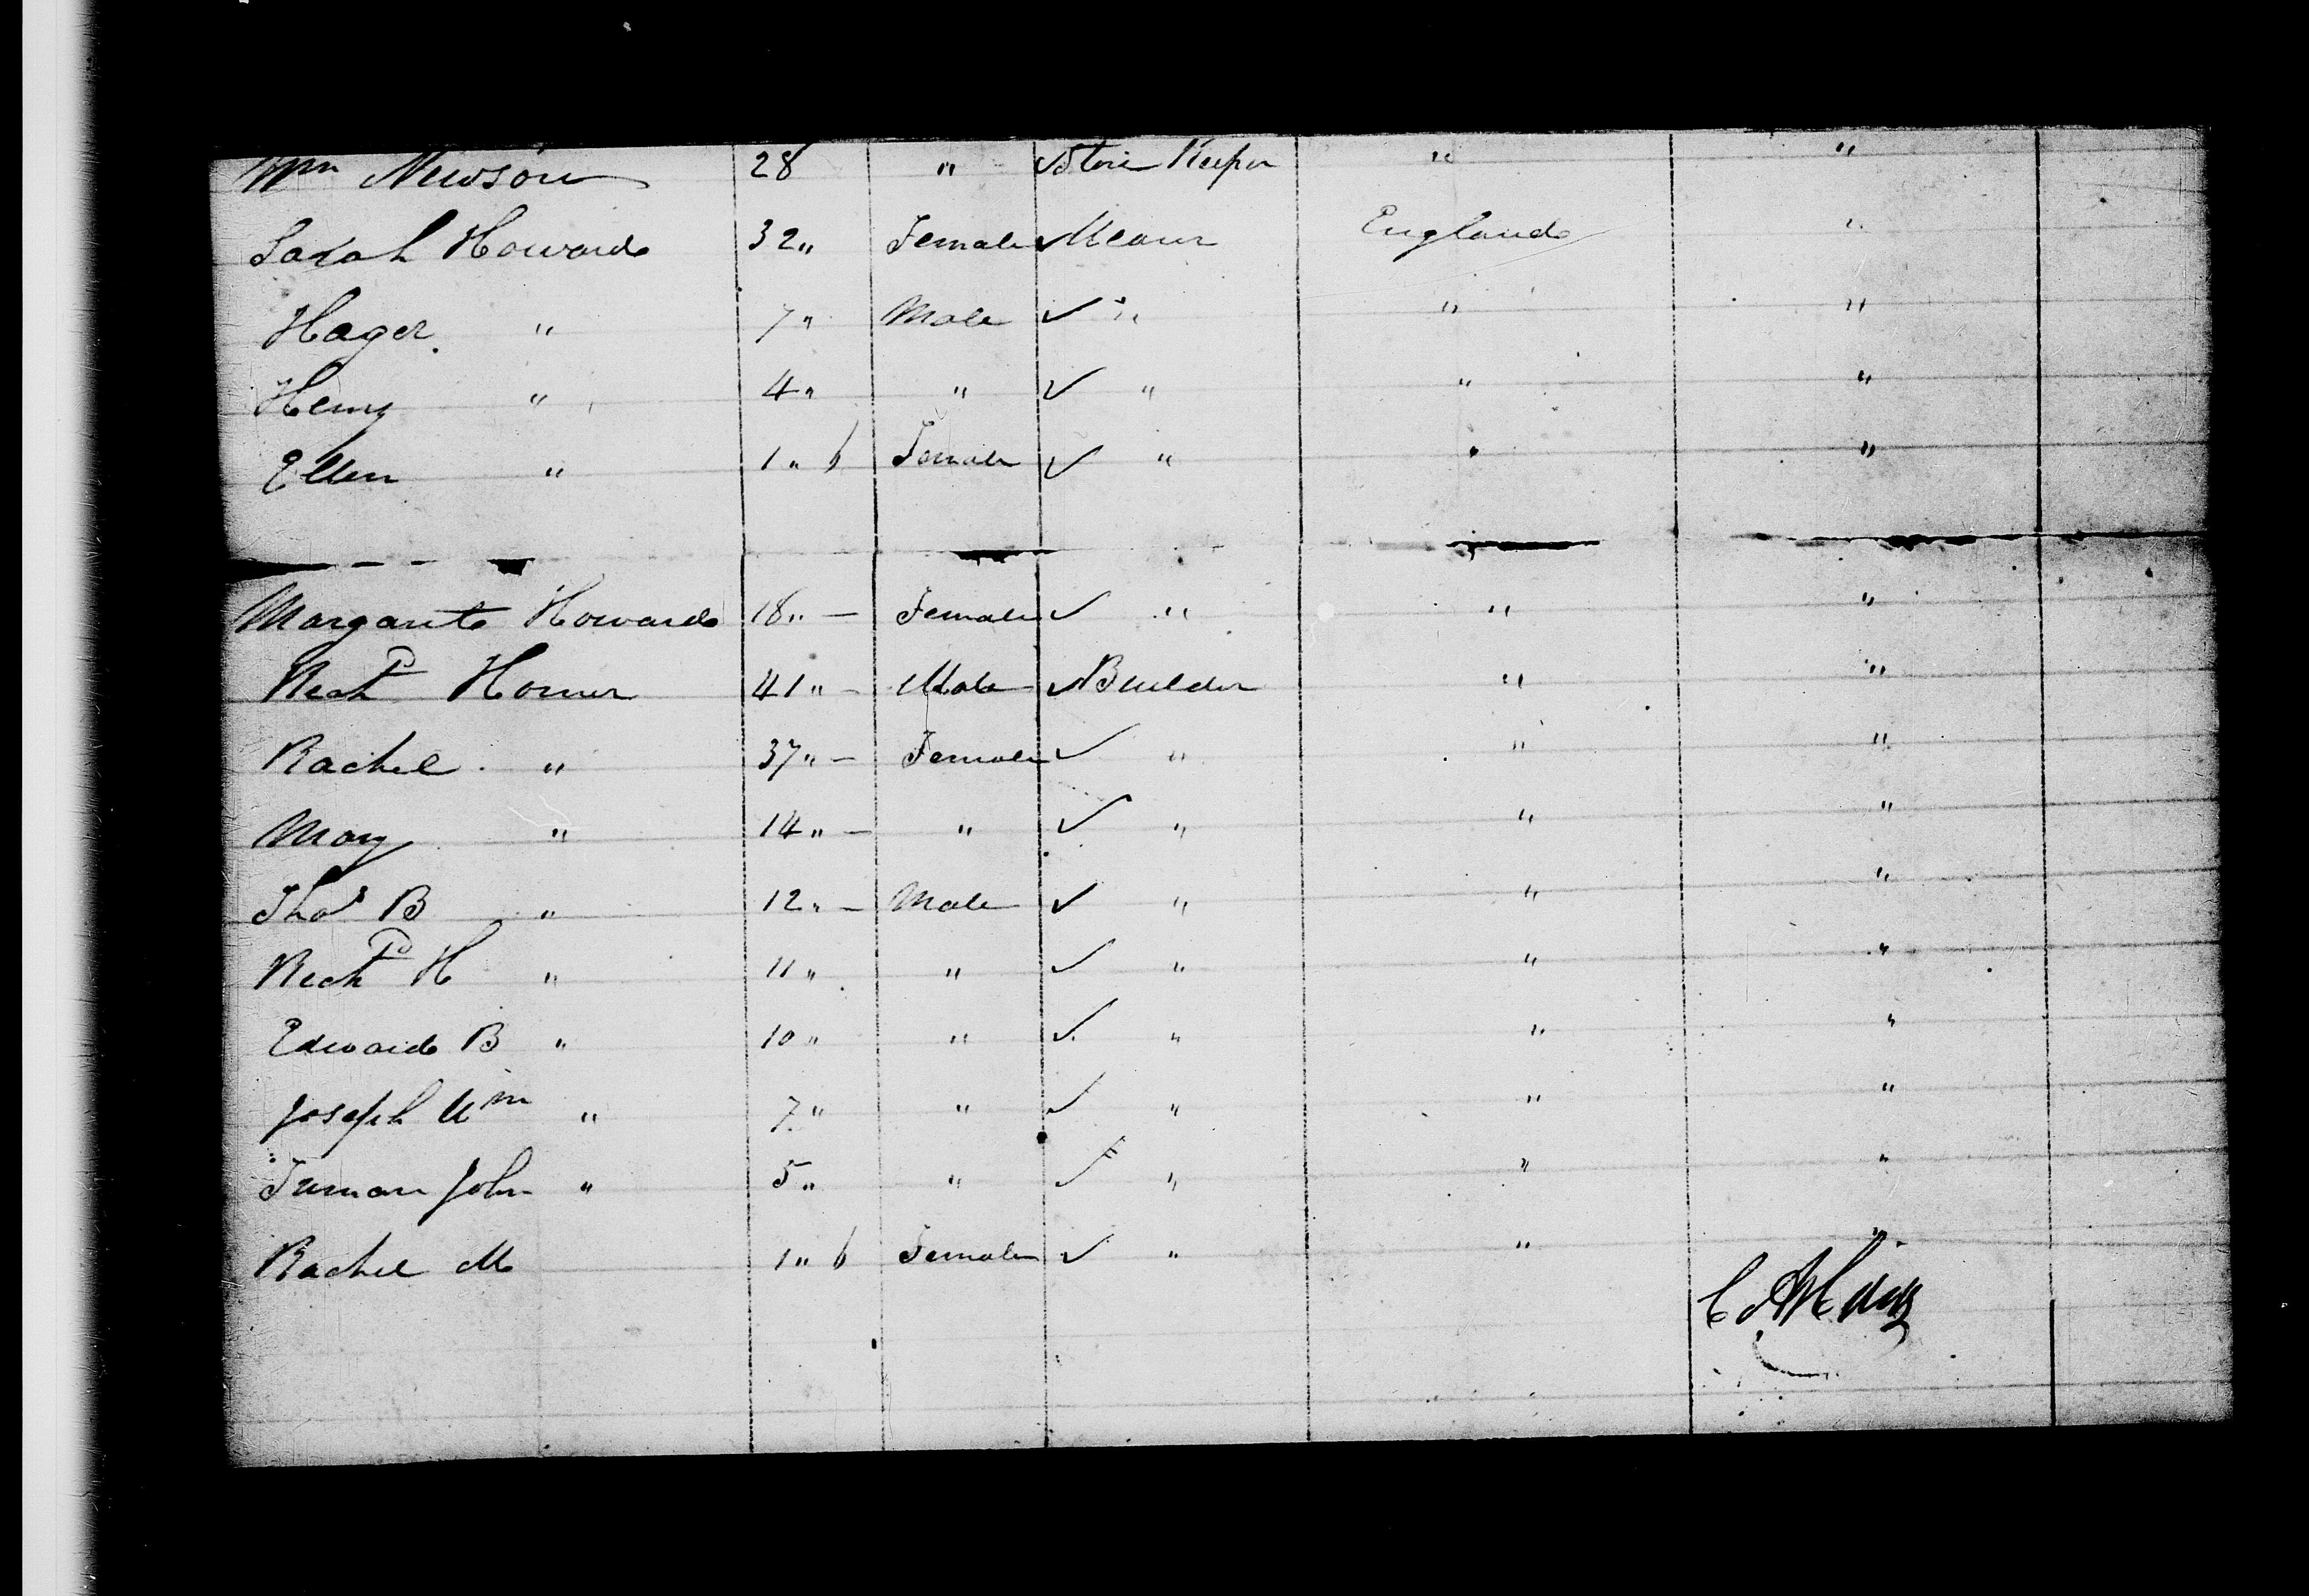 Wm Newson 28 " Store Keeper " "
Sarah Howard 32 " Female England "
Hager " 7 " Male " " "
Henry " 4 " " " " "
Ellen " 1 " 6 Female " " "
Margarite Howard 18 " — Female " " "
Richd Horner 41 " - Male Builder " "
Rachel " 37 " - Female " " "
Mary " 14 " — " " " "
Thos B " 12 " — Male " " "
Richd H " 11 " " " " "
Edward B " 10 " " " " "
Joseph Wm " 7 " " " " "
John " 5 " " " " "
Rachel M 1 " 6 Female " " "